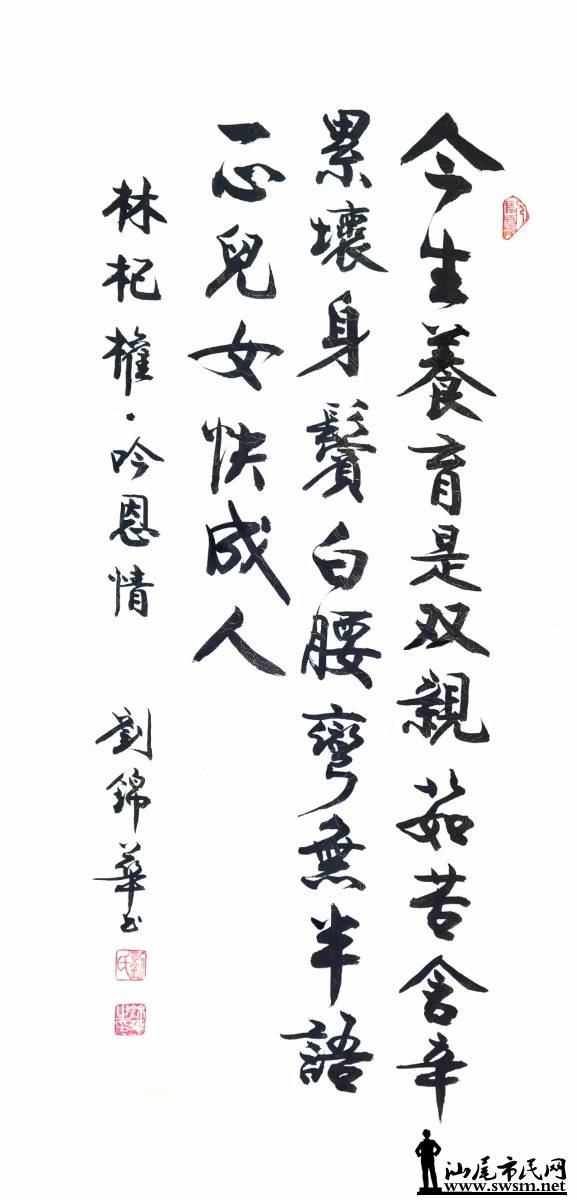 今生養育是双親茹苦含辛
累壞身鬓白腰彎無半語
一心兒女快成人
林杞權·吟恩情
劉錦華书
汕尾市民网
www.swsm.net